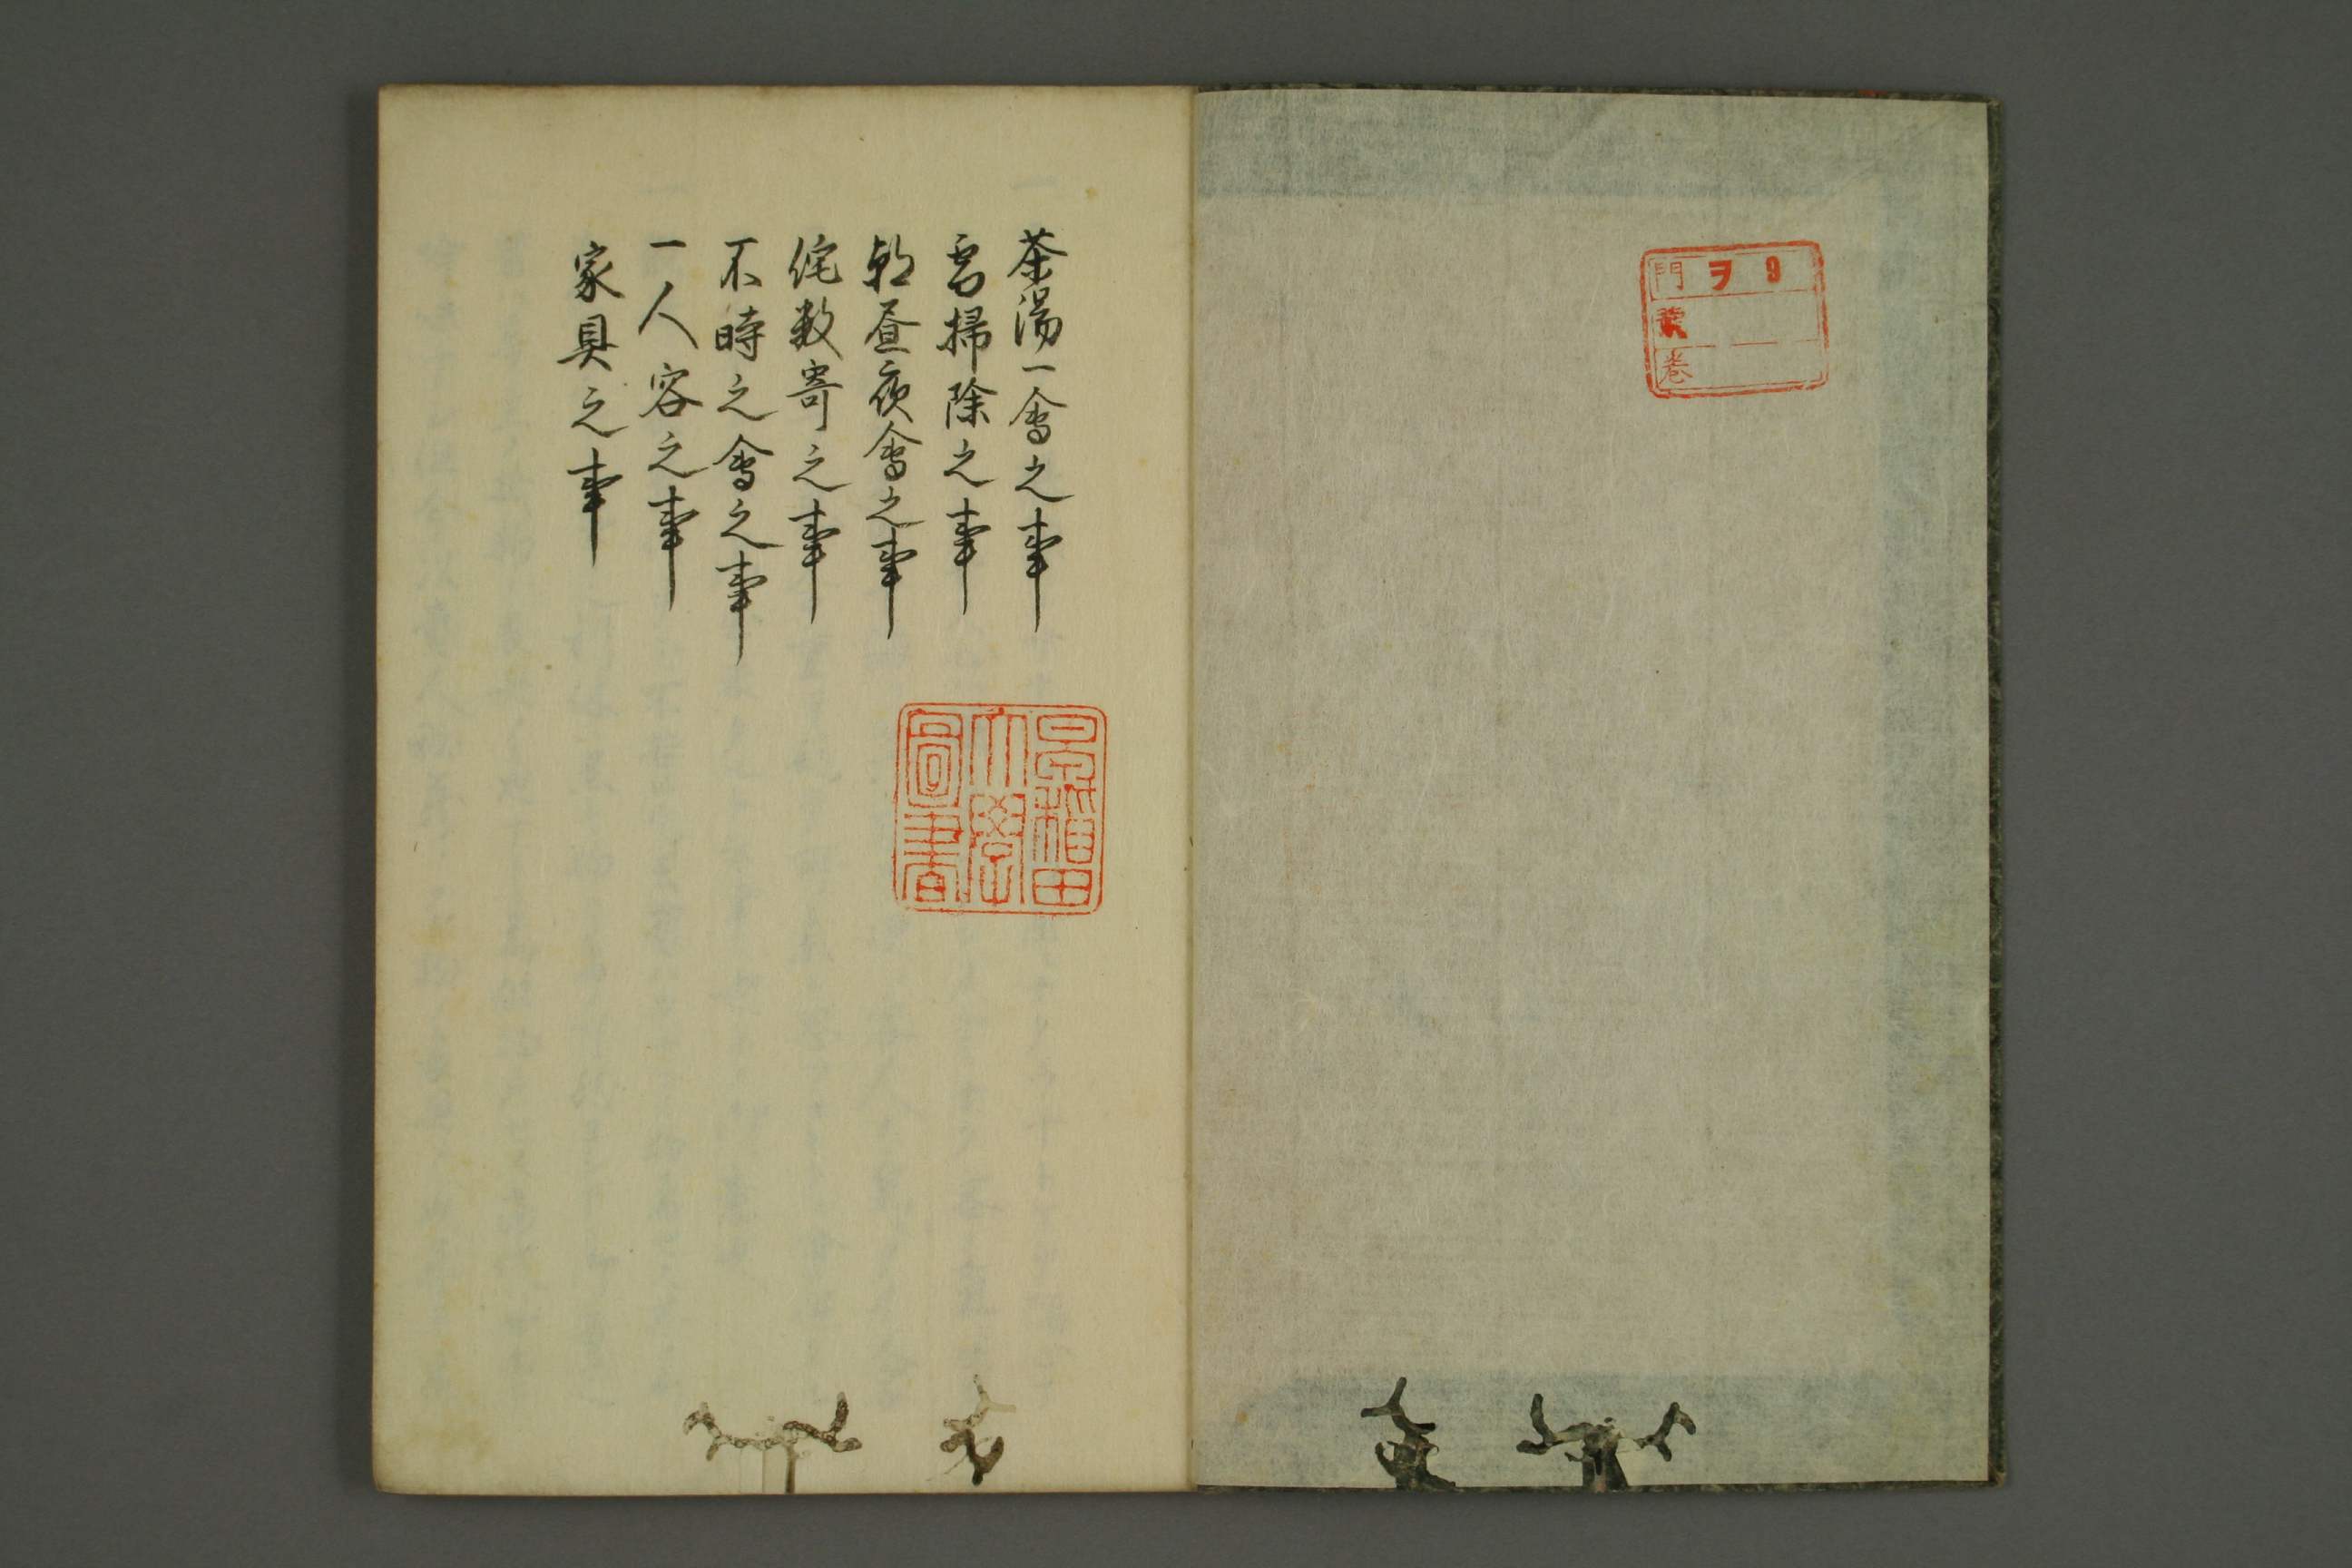 門 ヲ 9
號
巻
茶湯一會之事
掃除之事
朝昼夜會之事
侘数寄之事
不時之會之事
一人客之事
家具之事
早稲田
大學
圖書